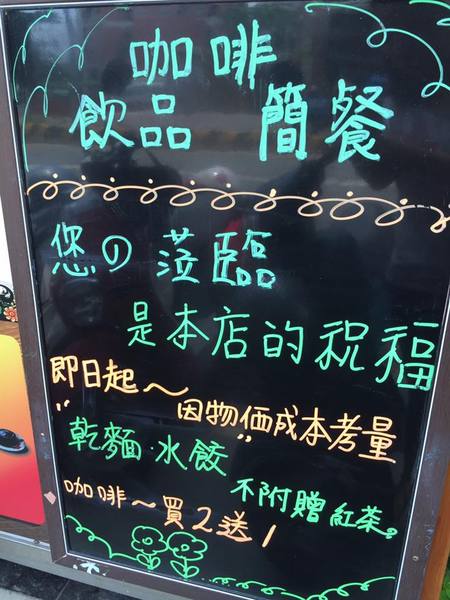 咖啡
飲品 簡餐
您の蒞臨
是本店的祝福
即日起~
因物価成本考量
"乾麵·水餃"
不附贈紅茶。
咖啡~買2送1